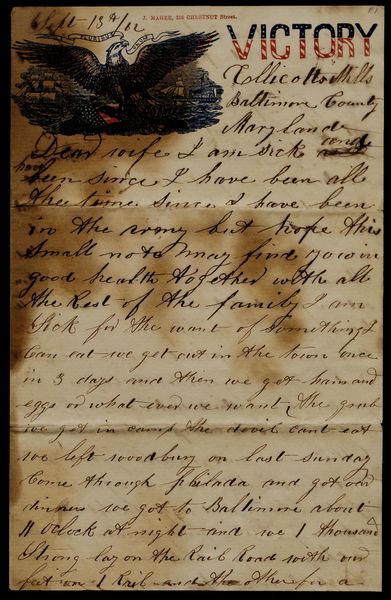 J. MAGEE, 316 CHESTNUT Street.
Sept 13th/62
E PLURIBUS UNUM
VICTORY
Ellicotts Mills
Baltimore County
Maryland
Dear wife I am sick and
have been since I have been all
the time since I have been
in the army but hope this
small note may find you in
good health together with all
the Rest of the family I am
Sick for the want of something I
Can eat we get out in the town once
in 3 days and then we get ham and
eggs or what ever we want the grub
we get in camp the devil cant eat
we left woodbury on last sunday
Come through Philada and got our
dinners we got to Baltimore about
11 oClock at night and we 1 thousand
Strong lay on the Rail Road with our
feet on 1 Rail and the other for a